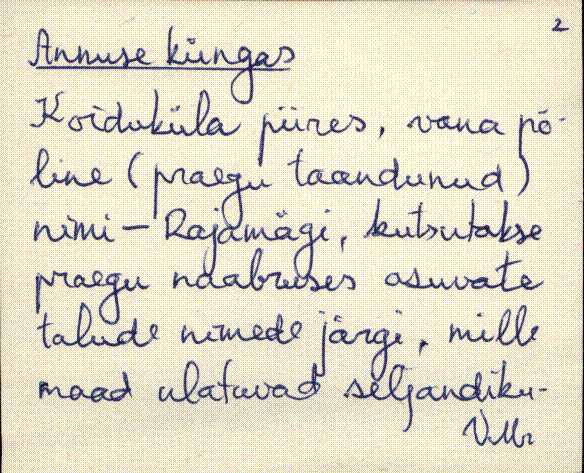 2
Annuse küngas
Koiduküla piires, vana põ-
line (praegu taandunud)
nimi - Rajamägi, kutsutakse
praegu naabruses asuvate
talude nimede järgi, mille
maad ulatuvad seljandiku-